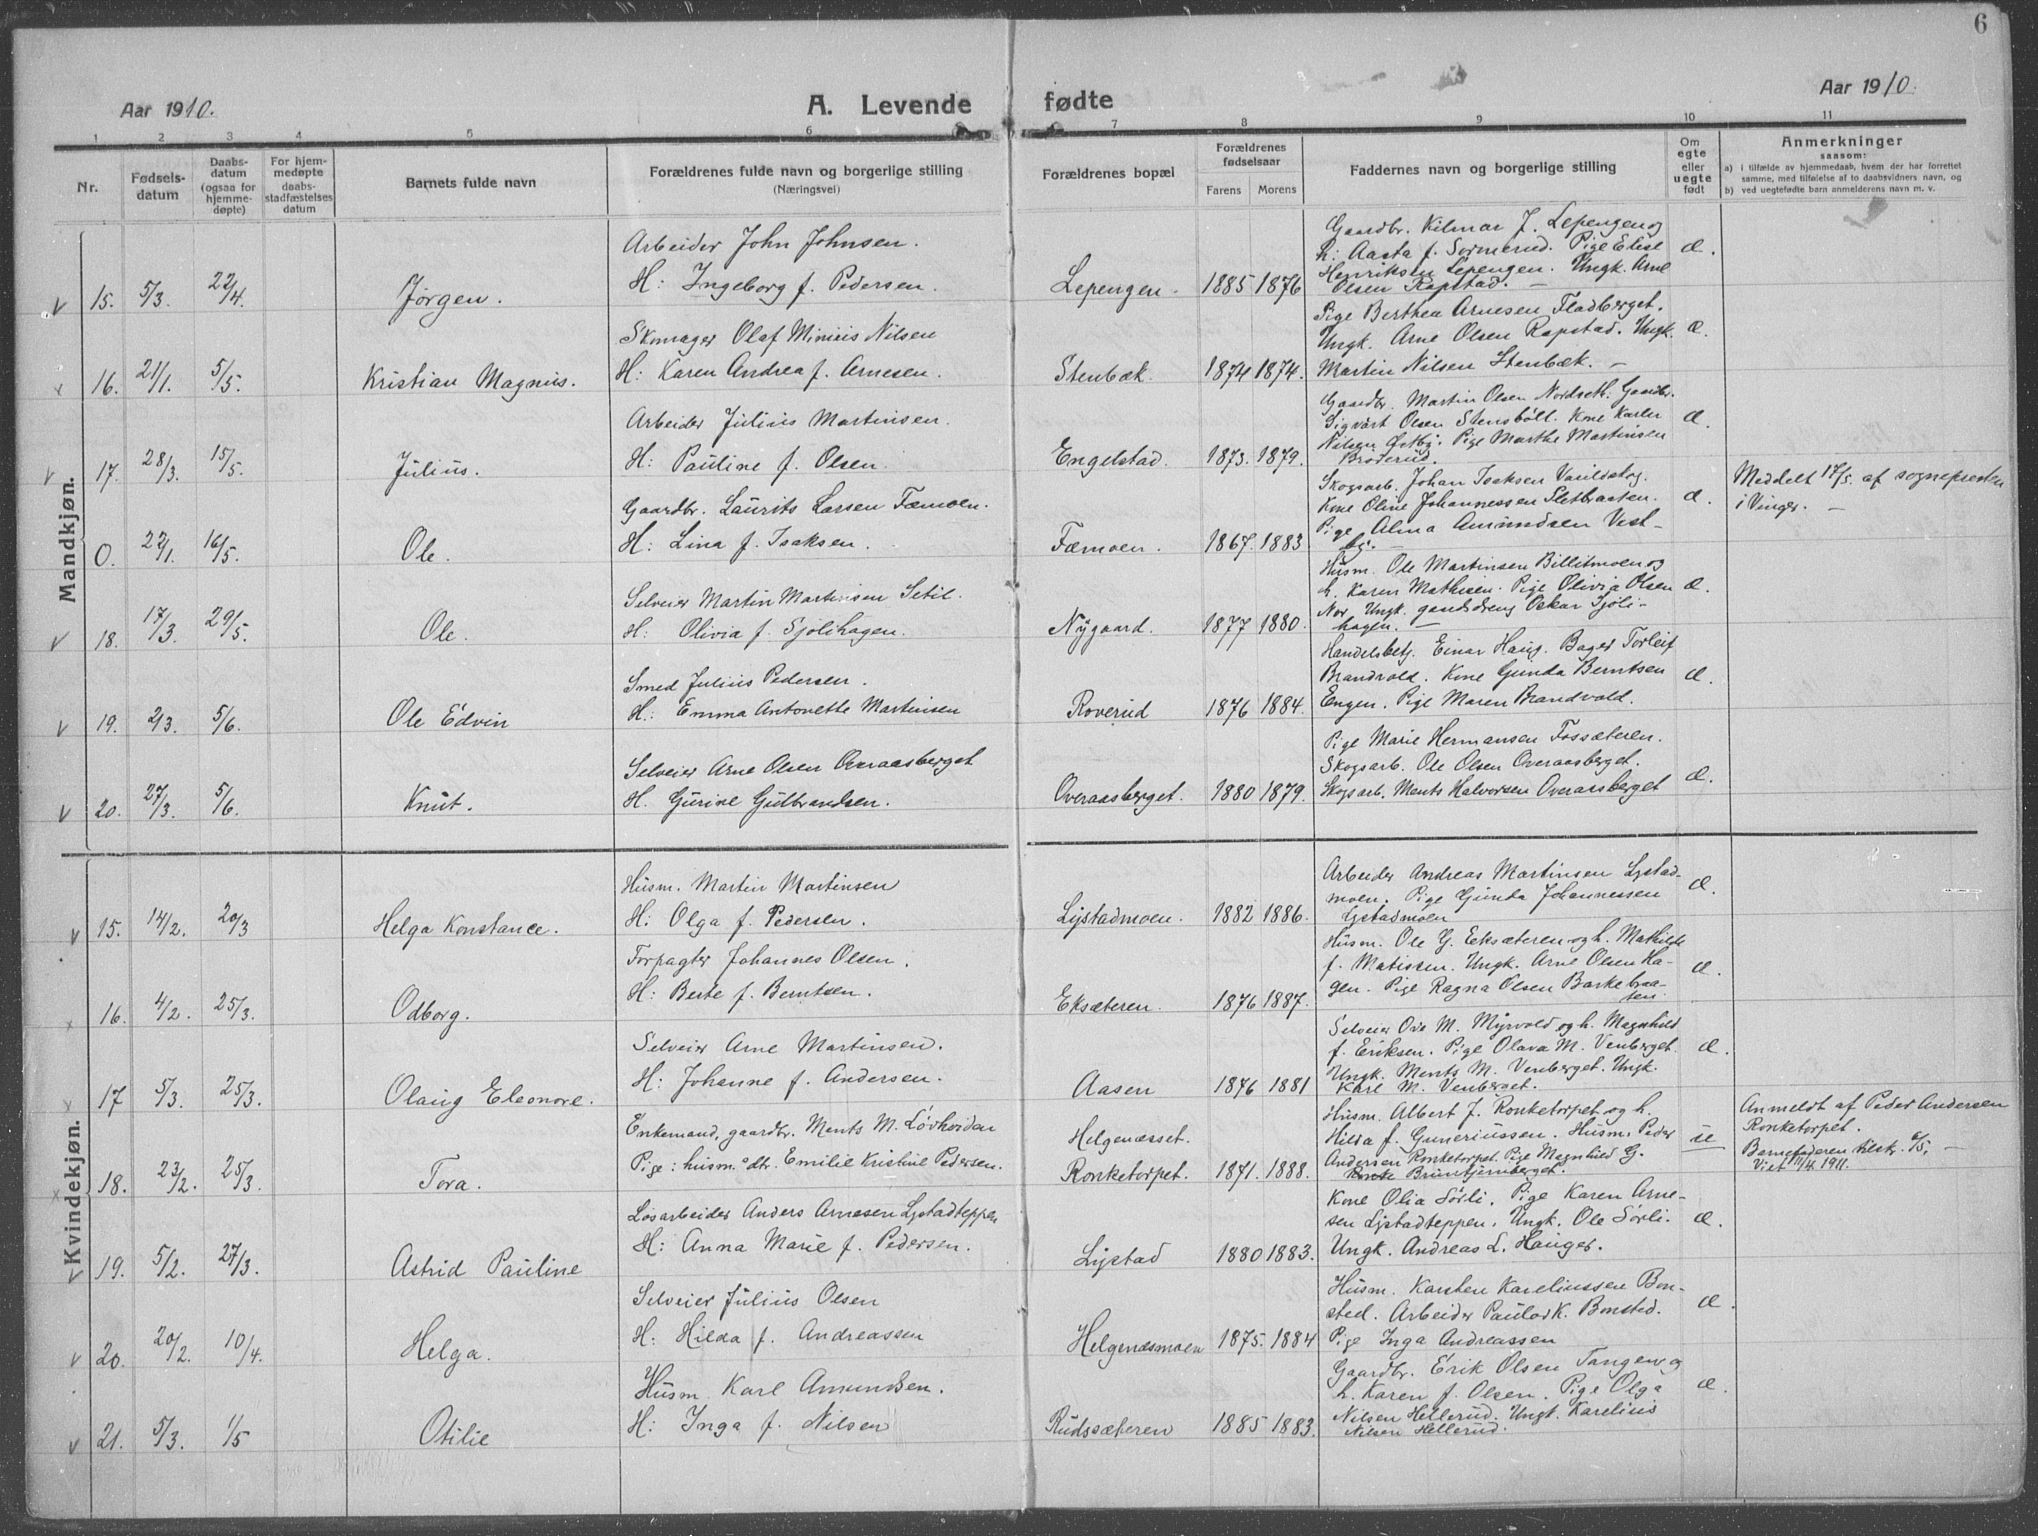 6
Aar 1910.
A. Levende
fødte
Aar 1910.
1 2 3 4 5 6 7 8 9 10 11
Nr.
Fødselsdatum
Daabsdatum (ogsaa for hjemmedøpte)
For hjemmedøpte daabsstadfæstelses datum
Barnets fulde navn
Forældrenes fulde navn og borgerlige stilling (Næringsvei)
Forældrenes bopæl
Forældrenes fødselsaar
Farens Morens
Faddernes navn og borgerlige stilling
Om egte eller uegte født
Anmerkninger
saasom:
a) i tilfælde av hjemmedaab, hvem der har forrettet samme, med tilføielse af to daabsvidners navn, og
b) ved uegtefødte barn anmelderens navn m. v.
Mandkjøn.
v 15. 5/3. 22/4. Jørgen.
Arbeider John Johnsen.
H: Ingeborg f. Pedersen.
Lepengen. 1885 1876
Gaardbr. Kilmar J. Lepengen og
h: Aasta f. Sormerud. Pige Elise
Henriksen Lepengen. Ungk. Arne
Olsen Rapstad. —
Æ.
x 16. 21/1. 5/5. Kristian Magnus.
Skomager Olaf Minius Nilsen
H: Karen Andrea f. Arnesen.
Stenbæk. 1874 1874.
Pige Berthea Arnesen Fladberget.
Ungk. Arne Olsen Rapstad. Ungk.
Martin Nilsen Stenbæk. —
Æ.
v 17. 28/3. 15/5. Julius.
Arbeider Julius Martinsen.
H: Pauline f. Olsen.
Engelstad. 1873. 1879.
Gaardbr. Martin Olsen Nordseth. Gaardbr.
Sigvart Olsen Stensböll. Kone Karler
Nilsen Østby. Pige Marthe Martinsen
Bröderud.
Æ.
0. 22/1. 16/5. Ole.
Gaardbr. Laurits Larsen Fæmoen.
H: Lina f. Isaksen.
Fæmoen. 1867. 1883
Skogsarb. Johan Isaksen
Kone Oline Johannessen Sletbraaten.
Pige Alma Amundsen Vestby.
Æ.
Meddelt 17/5. af sognepresten
i Vinger. —
v 18. 17/3. 29/5. Ole.
Selveier Martin Martinsen Setil.
H: Olivia f. Sjölihagen.
Nygaard. 1877 1880.
Husm. Ole Martinsen Billitmoen og
h. Karen Mathisen. Pige Olivia Olsen
Nor. Ungk. gaardsdreng Oskar Sjölihagen. —
Æ.
v 19. 2/3. 5/6. Ole Edvin
Smed Julius Pedersen.
H: Emma Antonette Martinsen
Roverud 1876 1884.
Handelsbetj. Einar Haug. Bager Torleif
Brandvold. Kone Gunda Berntsen
Engen. Pige Maren Brandvold.
Æ.
v 20. 27/3. 5/6. Knut.
Selveier Arne Olsen Overaasberget
H. Gurine Gulbrandsen.
Overaasberget. 1880 1879.
Pige Marie Hermansen Fossæteren.
Skogsarb. Ole Olsen Overaasberget.
Skogsarb. Ments Halvorsen Overaasberget
Æ.
Kvindekjøn.
v 15. 14/2. 20/3 Helga Konstance.
Husm. Martin Martinsen
H: Olga f. Pedersen.
Lystadmoen. 1882 1886.
Arbeider Andreas Martinsen Lystadmoen. Pige Gunda Johannessen
Lystadmoen
Æ.
x 16. 4/2. 25/3. Odborg.
Forpagter Johannes Olsen.
H: Berte f. Berntsen.
Eksæteren. 1876 1887.
Husm. Ole G. Eeksæteren og h. Mathilde
f. Matissen. Ungk. Arne Olsen Hagen. Pige Ragna Olsen Barkebraaten.
Æ.
x 17 5/3. 25/3. Olaug Eleonore.
Selveier Arne Martinsen.
H: Johanne f. Andersen.
Aasen 1876 1881
Selveier Ove M. Myrvold og h. Magnhild
f. Eriksen. Pige Olava M. Venberget.
Ungk. Ments M. Venberget. Ungk.
Karl M. Venberget.
Æ.
x 18. 23/2. 25/3. Tora.
Enkemand, gaardbr. Ments M. Lövhviden
Pige: husm. dtr. Emilie Kristine Pedersen.
Helgenæsset.
Ronketorpet. 1871. 1888.
Husm. Albert J. Ronketorpet og h.
Hilda f. Guneriussen. Husm. Peder
Andersen Ronketorpet. Pige Magnhild G.
Bruntjernberget.
ue
Anmeldt af Peder Andersen
Ronketorpet.
Barnefaderen tilskr. 6/5. —
Viet 11/4. 1911.
v 19. 5/2. 27/3. Astrid Pauline
Løsarbeider Anders Arnesen Lystadteppen
H: Anna Marie f. Pedersen.
Lystad 1880 1883.
Kone Olia Sörli. Pige Karen Arnesen Lystadteppen. Ungk. Ole Sörli.
Ungk. Andreas L. Hauger.
Æ.
v 20. 20/2. 10/4. Helga.
Selveier Julius Olsen
H: Hilda f. Andreassen
Helgenæsmoen 1875. 1884
Husm. Karsten Kareliussen Bonsted. Arbeider Paul K. Bonsted.
Pige Inga Andreassen
Æ.
v 21. 5/3. 1/5 Otilie
Husm. Karl Amundsen.
H: Inga f. Nilsen
Rudssæteren 1885 1883.
Gaardbr. Erik Olsen Tangen og
h. Karen f. Olsen. Pige Olga
Nilsen Hellerud. Ungk. Karelius
Nilsen Hellerud.
Æ.